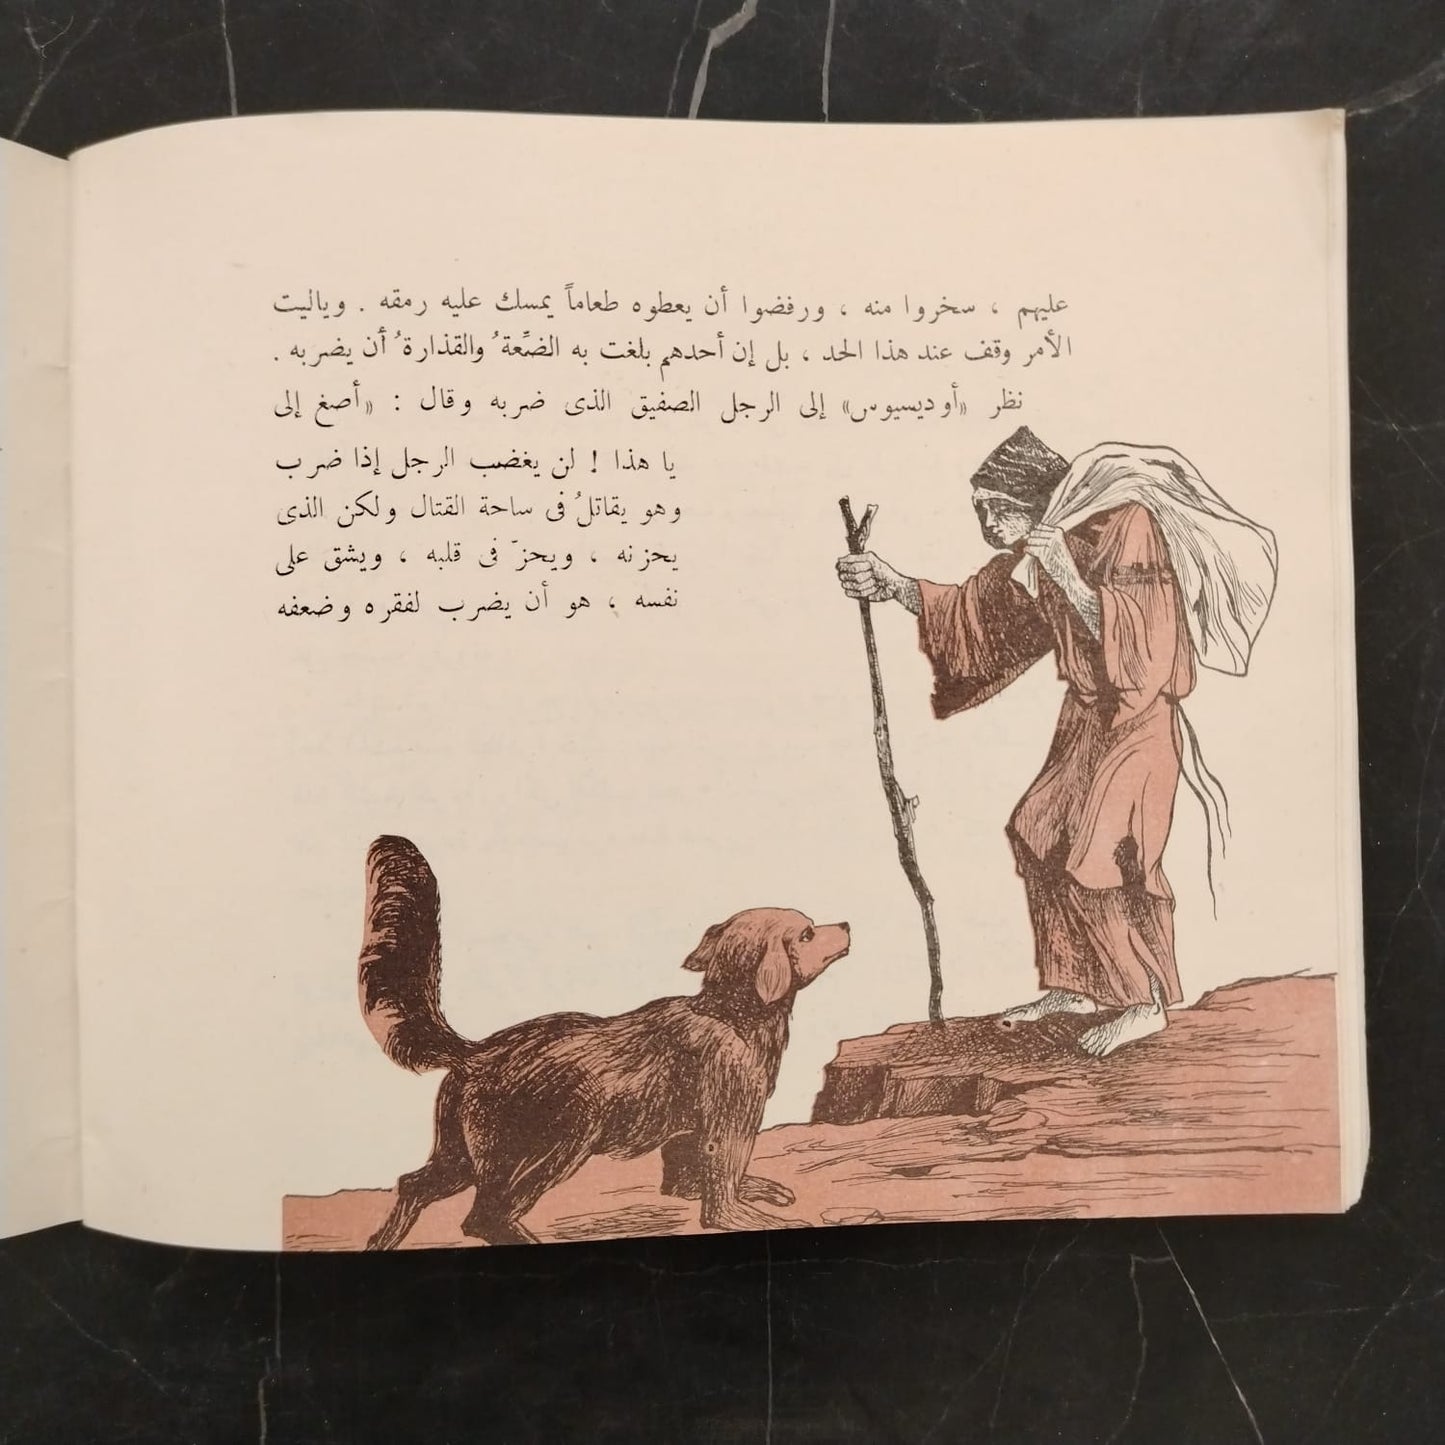 عليهم ، سخروا منه ، ورفضوا أن يعطوه طعاماً يمسك عليه رمقه . وياليت
الأمر وقف عند هذا الحد ، بل إن أحدهم بلغت به الضِّعةُ والقذارةُ أن يضربه .
نظر «أوديسيوس» إلى الرجل الصفيق الذى ضربه وقال : «أصغ إلى
يا هذا ! لن يغضب الرجل إذا ضرب
وهو يقاتلُ فى ساحة القتال ولكن الذى
يحزنه ، ويحزّ فى قلبه ، ويشق على
نفسه ، هو أن يضرب لفقره وضعفه